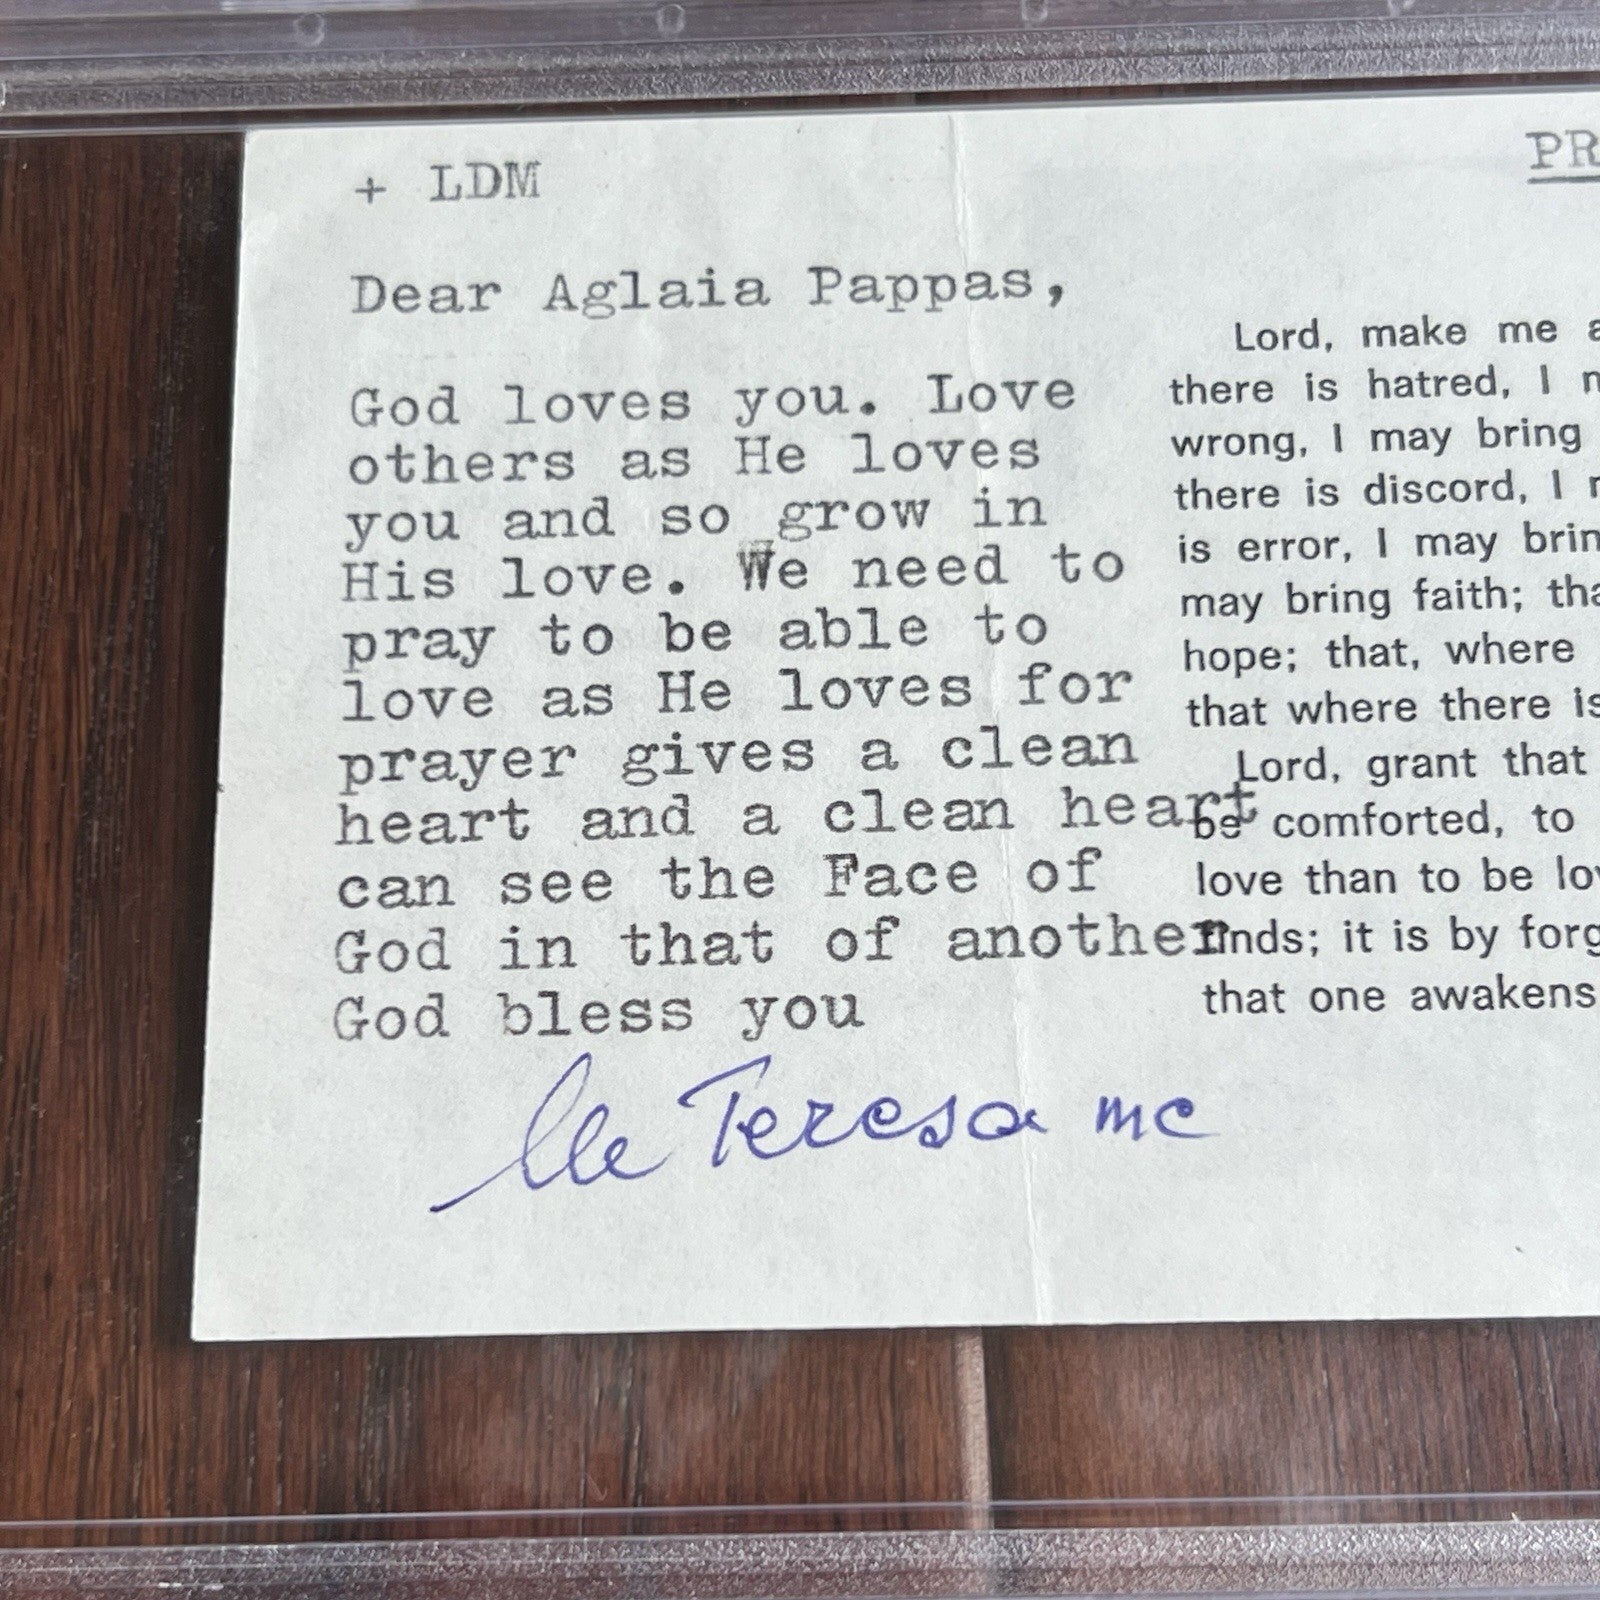 + LDM
Dear Aglaia Pappas,
God loves you. Love
others as He loves
you and so grow in
His love. We need to
pray to be able to
love as He loves for
prayer gives a clean
heart and a clean heart
can see the Face of
God in that of another
God bless you
Me Teresa mc
PR
Lord, make me a
there is hatred, I
wrong, I may bring
there is discord, I
is error, I may brin
may bring faith; tha
hope; that, where
that where there is
Lord, grant that
be comforted, to
love than to be lov
finds; it is by forg
that one awakens